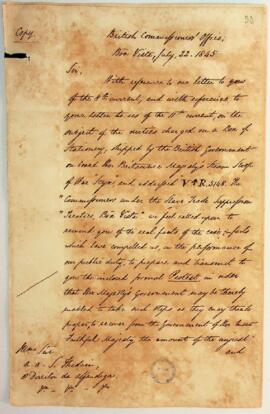 Copy.
British Commissioners' Office,
Boa Vista, July, 22. 1845
Sir,
With reference to our letter to you
of the 8th current, and with reference to
your letter to us of the 11th current, on the
subject of the duties charged on a Box of
Stationery, shipped by the British Government
on board Her Britannic Majesty's Steam Sloop
of War "Styx" and addressed V*R. 3148. The
Commissioners under the Slave Trade Suppression
Treaties, Boa Vista" we feel called upon to
remind you of the real facts of the case, facts
which have compelled us, in the performance of
our public duty, to prepare and transmit to
you the inclosed formal Protest in order
that Her Majesty's Government may be thereby
enabled to take such steps as they may think
proper, to recover from the Government of Her Most
Faithful Majesty the amount of the
and
Director da Alfandega